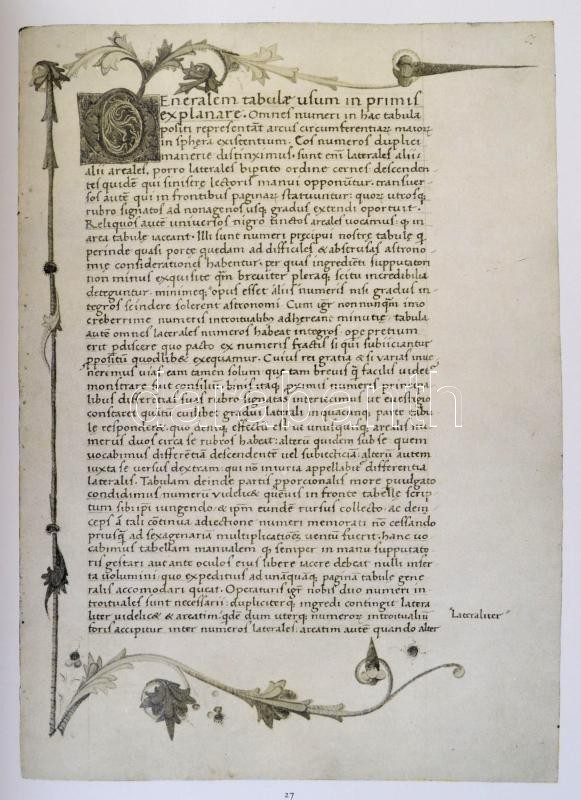 Generalem tabulæ usum in primis
explanare. Omnes numeri in hac tabula
positi representāt arcus circumferentiaꝝ maioꝝ
in sphera existentium. Eos numeros duplici
manerie distinximus. sunt em̄ laterales alii
alii areales. porro laterales bipito ordine cernes descenden
tes quidē qui sinistre lectoris manui opponūtur. transuer
sos autē qui in frontibus paginaꝝ statuuntur. quoꝝ utrosqꝫ
rubro signatos ad nonagenos usqꝫ gradus extendi oportuit.
Reliquos autē universos nigro tinctos areales vocamus. ꝙ in
area tabule iaceant. Illi sunt numeri precipui nostre tabule
perinde quasi porte quedam ad difficiles & abstrusas astrono
mie considerationes habentur. per quas ingrediēti supputatori
non minus exquisite qm̄ breviter pleraqꝫ scitu incredibilia
deteguntur. minimeqꝫ opus esset aliis numeris nisi gradus in
tegros scindere solerent astronomi. Cum igr̄ nonnunqm̄ imo
creberrime numeris introitualibus adhereāt minutie. tabula
autē omnes laterales numeros habeat integros. ope pretium
erit pdiscere quo pacto ex numeris fractis si qui subiiciantur
ppositū quodlibet exequamur. Cuius rei gratia & si varias inve
neremus vias eam tamen solum que tam brevis q̄ facilis videtʳ
monstrare fuit consilium. binis itaqꝫ pximis numeris princi
libus differētias suas rubro signatas interiecimus ut e vestigio
constaret quātū cuilibet gradui laterali in quacunqꝫ parte tabu
le respondeat. quo deniqꝫ effectū est ut unusquisqꝫ arealis nu
merus duos circa se rubros habeat. alterū quidem sub se quem
vocabimus differētiā descendentē vel subiectiuā. alterū autem
iuxta se versus dextram. qui nō iniuria appellabitʳ differentia
lateralis. Tabulam deinde partis pporcionalis more pvulgato
condidimus numerū videlicet quēvis in fronte tabelle scrip
tum sibiipsi iungendo & ipm̄ eundē rursus collecto. ac dein
ceps a tali cōtinua adiectione numeri memorati nō cessando
priusqꝫ ad sexagenaria multiplicatiōeꝫ ventū fuerit. hanc vo
cabimus tabellam manualem ꝙ semper in manu supputato
ris gestari aut ante oculos eius libere iacere debeat nulli inser
ta volumini. quo expeditius ad unāquāqꝫ paginā tabule gene
ralis accomodari queat. Operaturis igr̄ nobis duo numeri in
troituales sunt necessarii. dupliciterqꝫ ingredi contingit latera
liter videlicet & areatim. qđē dum uterqꝫ numeroꝝ introitualiū
foris accipitur inter numeros laterales. areatim autē quando alter
Lateraliter
27
darabanth.com